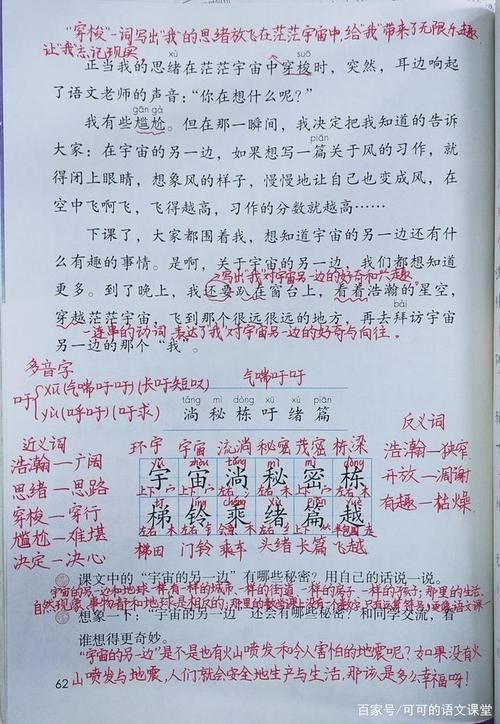 “穿梭”一词写出“我”的思绪放飞在茫茫宇宙中,给“我”带来了无限乐趣,
让“我”忘记现实。
xù suō
正当我的思绪在茫茫宇宙中穿梭时，突然，耳边响起
了语文老师的声音：“你在想什么呢？”
gān gà
我有些尴尬。但在那一瞬间，我决定把我知道的告诉
piān
大家：在宇宙的另一边，如果想写一篇关于风的习作，就
得闭上眼睛，想象风的样子，慢慢地让自己也变成风，在
空中飞啊飞，飞得越高，习作的分数就越高……
下课了，大家都围着我，想知道宇宙的另一边还有什
么有趣的事情。是啊，关于宇宙的另一边，我们都想知道
写出“我”对宇宙另一边的好奇和兴趣。
更多。到了晚上，我还要趴在窗台上，看着浩瀚的星空，
bài
穿越茫茫宇宙，飞到那个很远很远的地方，再去拜访宇宙
一连串的动词,表达了“我”对宇宙另一边的好奇与向往。
另一边的那个“我”。
多音字
吁 xū(气喘吁吁)(长吁短叹)
yù(呼吁)(吁求)
气喘吁吁
tǎng mì dòng xū xù piān
淌 秘 栋 吁 绪 篇
近义词
浩瀚—广阔
思绪—思路
穿梭—穿行
尴尬—难堪
决定—决心
环宇 宇宙 流淌 秘密 茂密 栋梁
yǔ zhòu tǎng mì mì dòng
宇 宙 淌 秘 密 栋
上下 宀 上下 宀 左右 氵 左右 禾 上下 宀 左右 木
梯 铃 乘 绪 篇 越
梯田 门铃 乘车 头绪 长篇 飞越
反义词
浩瀚—狭窄
开放—凋谢
有趣—枯燥
课文中的“宇宙的另一边”有哪些秘密？用自己的话说一说。
宇宙的另一边和地球一样,有一样的城市、一样的街道、一样的房子、一样的孩子;那里的生活、
自然现象、事物都和地球是相反的;那里的数学课上没有
想象一下：“宇宙的另一边”还会有哪些秘密？和同学交流，看
谁想得更奇妙。
“宇宙的另一边”是不是也有火山喷发和令人害怕的地震呢？如果没有火
山喷发与地震,人们就会安全地生产与生活,那该是多么幸福呀！
62
百家号/可可的语文课堂